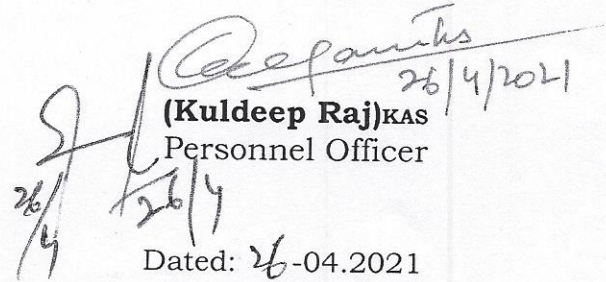 26/4/2021
(Kuldeep Raj)KAS
Personnel Officer
26/4
26/4
Dated: 26-04.2021